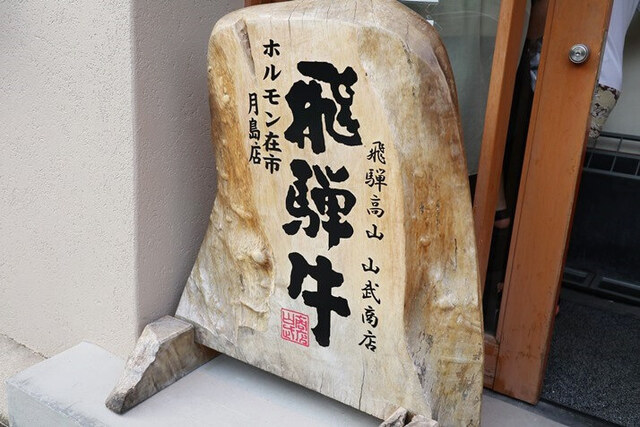 飛騨高山 山武商店
飛騨牛
ホルモン在市
月島店